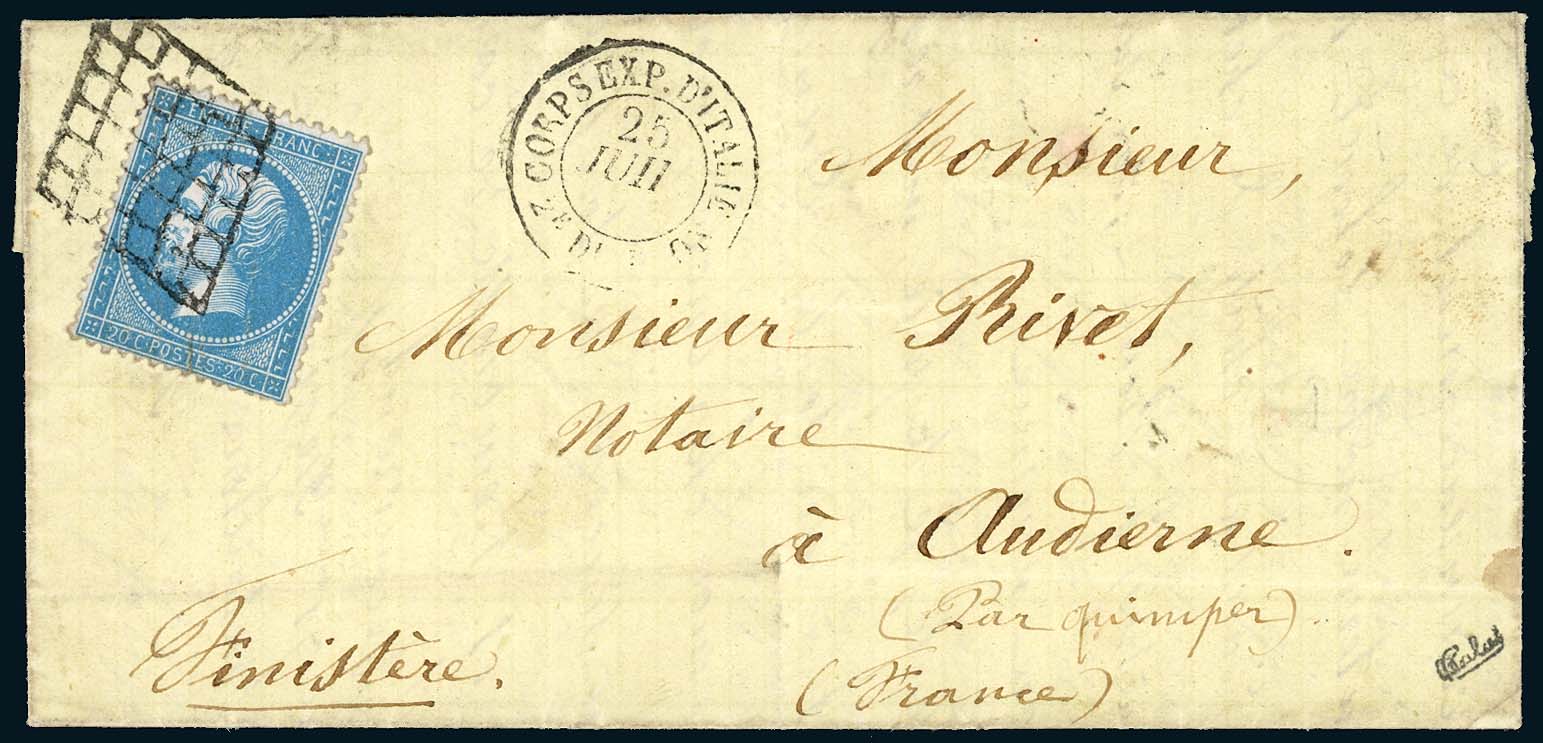 FRANC
20 C · POSTES · 20 C
CORPS EXP. D'ITALIE
25
JUIL
2E
Monsieur,
Monsieur Rivet,
Notaire
à Audierne.
(Par quimper).
Finistère.
(France)